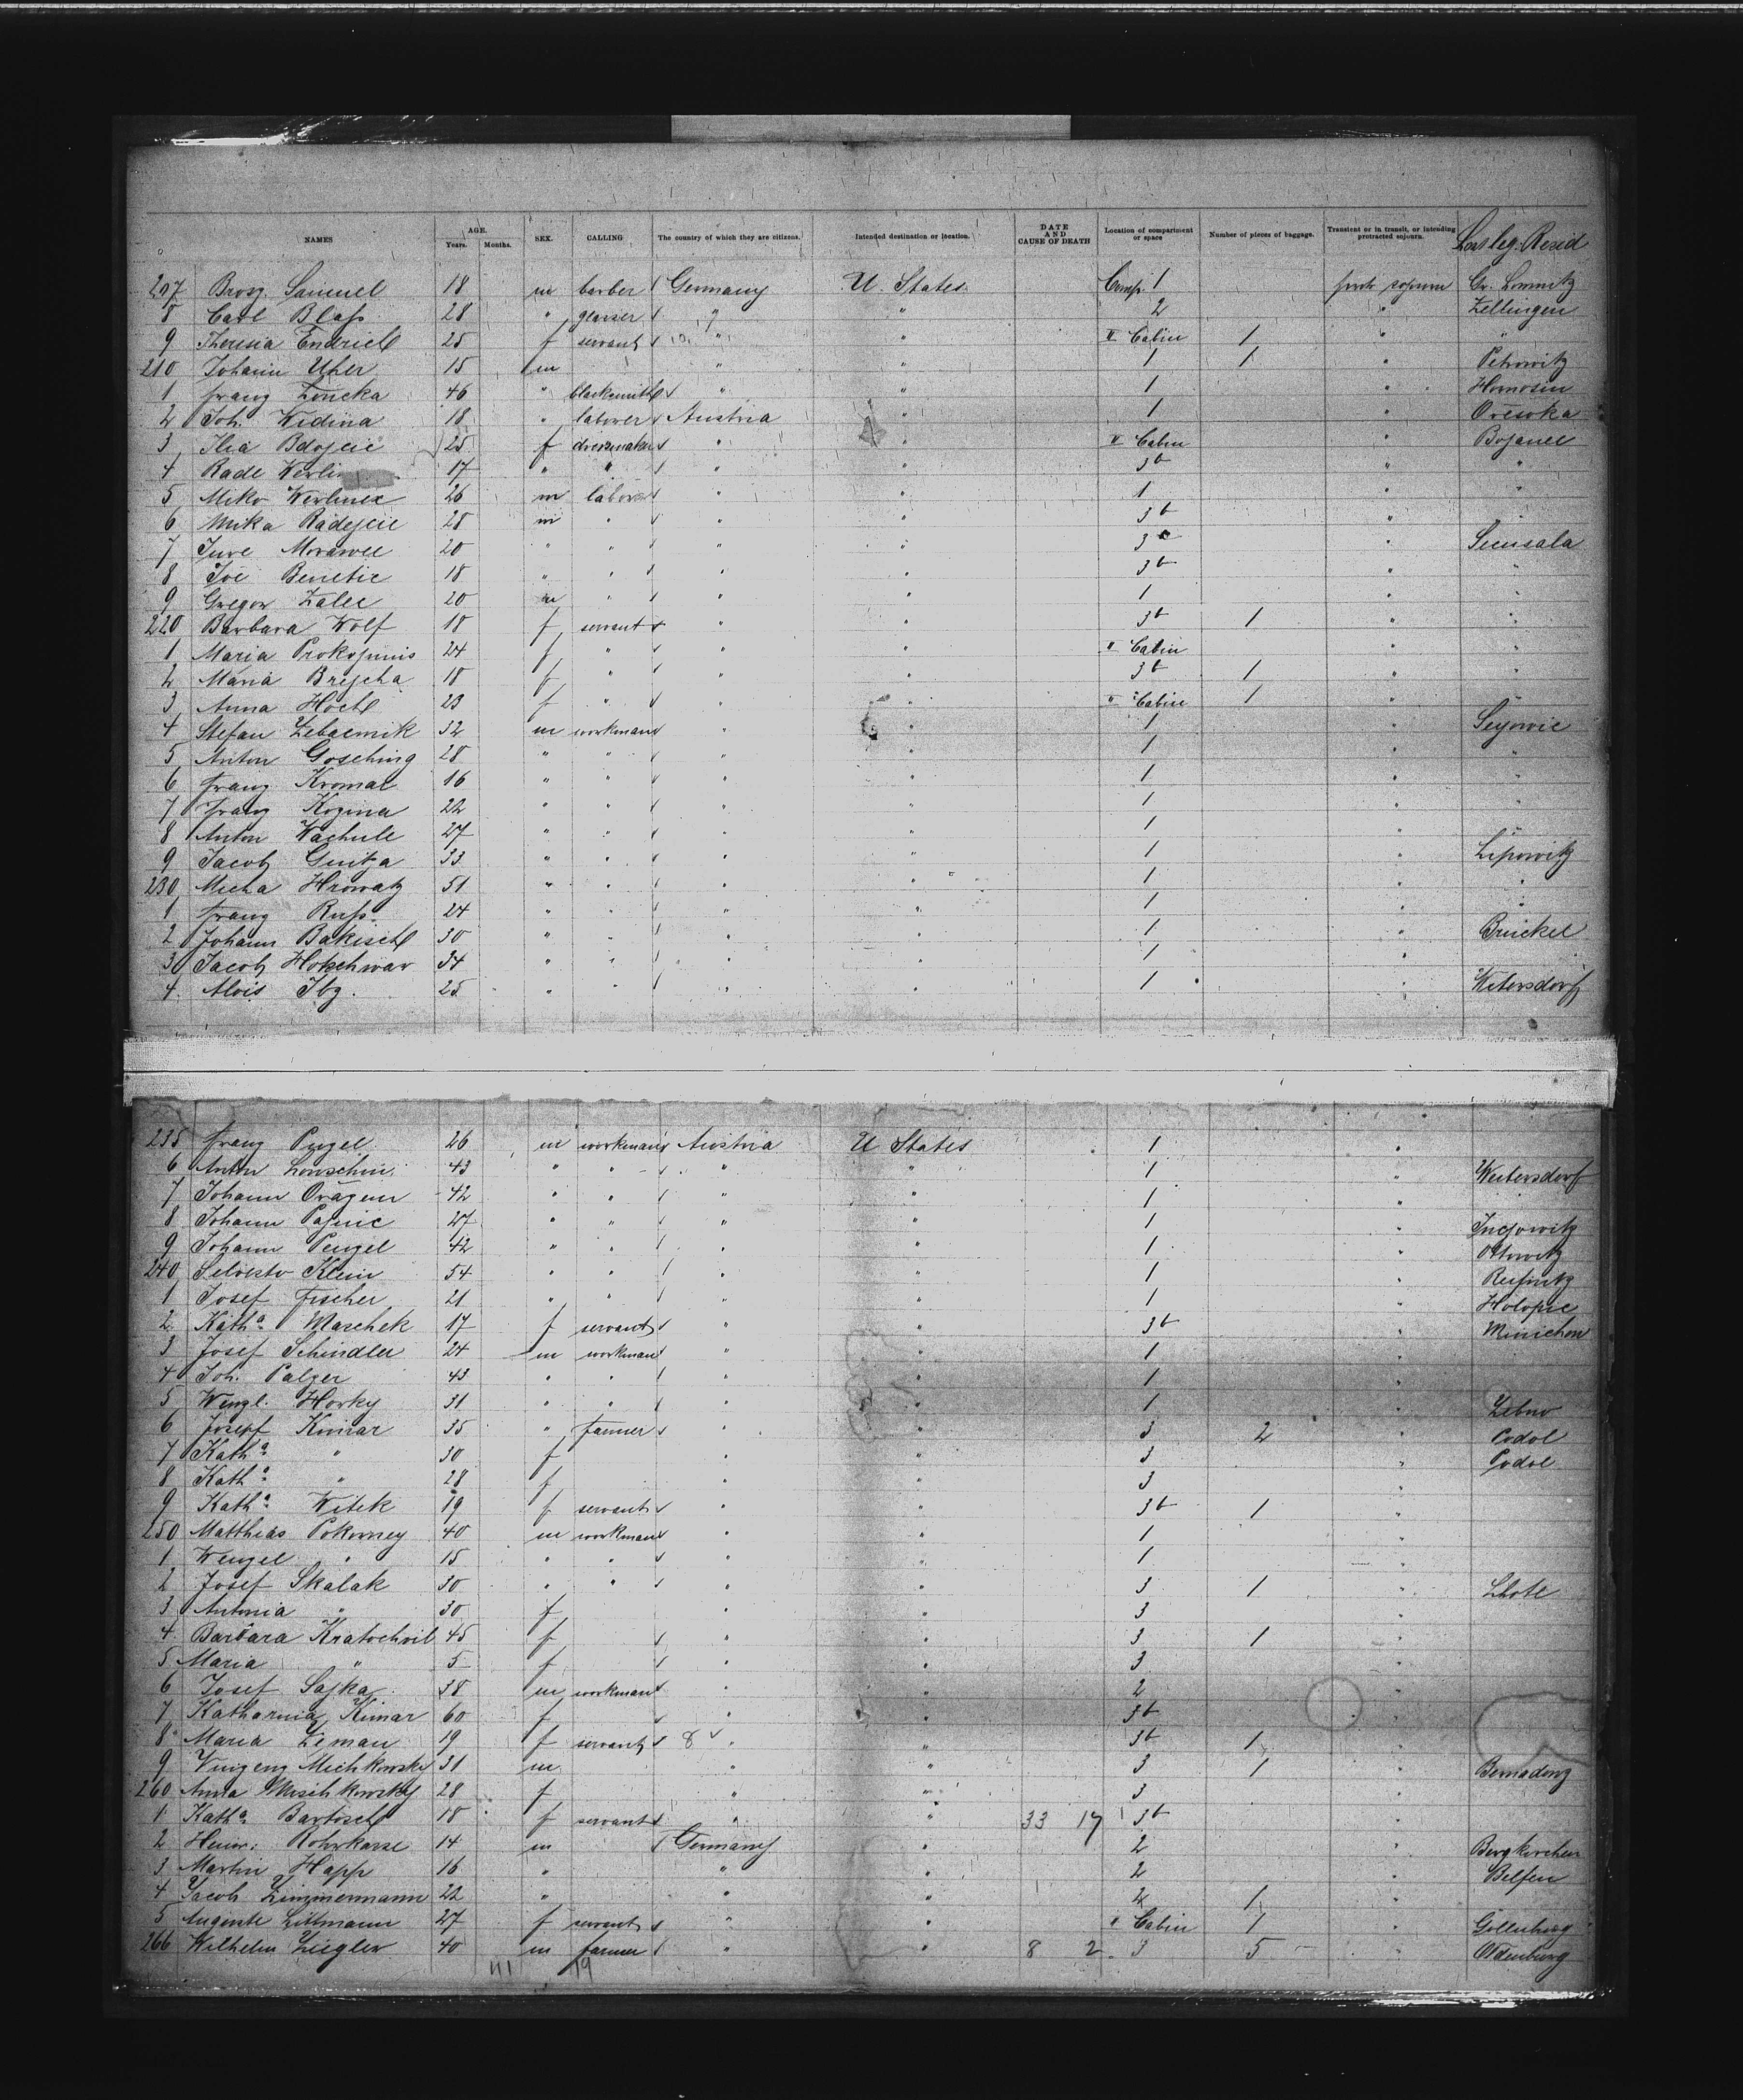 NAMES AGE. Years. Months. SEX. CALLING The country of which they are citizens. Intended destination or location. DATE AND CAUSE OF DEATH Location of compartment or space Number of pieces of baggage. Transient or in transit, or intending protracted sojourn. Las leg. Resid
207 Samuel 18 m barber Germany U. States Comp. 1 sojourn
8 Carl Blaß 28 " glasser " " 2 " Zellingen
9 Theresia Endrich 25 f servant " " II Cabin 1 " "
210 Johann Uher 15 m " " 1 1 " Petrowitz
1 Franz Loncka 46 " blacksmith " " 1 "
2 Joh. Widina 18 " laborer Austria " 1 "
3 25 f dressmaker " " II Cabin "
4 Rade 17 " " " " 3b " "
5 Miko 26 m labore " " 1 " "
6 Mika Radejcic 28 m " " " 3b " "
7 20 " " " " 3 "
8 Benetic 18 " " " " 3b " "
9 Gregor Zalec 20 m " " " 1 " "
220 Barbara Wolf 18 f servant " " 3b 1 " "
1 Maria 24 f " " " " Cabin " "
2 Maria Brejcha 18 f " " " 3b 1 " "
3 Anna Hoch 23 f " " " " Cabin 1 " "
4 Stefan 32 m workman " " 1 "
5 Anton Gosching 28 " " " " 1 " "
6 Franz Kromal 16 " " " " 1 " "
7 Franz Kozina 22 " " " " 1 " "
8 Anton Wachule 27 " " " " 1 "
9 Jacob 33 " " " " 1 " Lipowitz
230 Micha Hrowatz 51 " " " " 1 " "
1 Franz Ruß 24 " " " " 1 " "
2 Johann Bakisch 30 " " " " 1 " Brückel
3 Jacob Hokchwar 34 " " " " 1 "
4. Alois Ibz. 25 " " " " 1 " Witersdorf
235 Franz 26 m workman Austria U States 1 "
6 Anton Louschin 43 " " " " 1 " Weitersdorf
7 Johann 42 " " " " 1 "
8 Johann Pajnic 27 " " " " 1 "
9 Johann Pengel 42 " " " " 1 " Ottowitz
240 Klein 54 " " " " 1 " Reifnitz
1 Josef Fischer 21 " " " " 1 "
2 Katha. Marchek 17 f servant " " 3b "
3 Josef Schindler 24 m workman " " 1 "
4 Joh. Palzer 43 " " " " 1 "
5 Wenzl. Horky 31 " " " " 1 "
6 Josepf 35 " farmer " " 3 2 " Podol
7 Katha " 30 f " " 3 " Podol
8 Katha. " 28 f " " 3 "
9 Katha. Witek 19 f servant " " 3b 1 "
250 Matthias Pokorney 40 m workman " " 1 "
1 Wenzel " 15 " " " " 1 "
2 Josef Skalak 30 " " " " 3 1 "
3 Antonia " 30 f " " 3 "
4 Barbara Kratochvil 45 f " " 3 1 "
5 Maria " 5 f " " 3 "
6 Josef Sajka 38 m workman " " 2 "
7 Katharina Kimar 60 f " " 3b "
8 Maria Zeman 19 f servant 8 " " 3b 1 "
9 31 m " " 3 1 "
260 Anna Mischkowsky 28 f " " 3 "
1 Katha. Bartosch 18 f servant " " 33 17 3b "
2 Heinr. Rohrkasse 14 m Germany " 2 " Bergkirchen
3 Martin Happ 16 " " " 2 "
4 Jacob Zimmermann 22 " " " 2 1 "
5 Auguste Littmann 27 f servant " " " Cabin 1 "
266 Wilhelm Ziegler 40 m farmer " " 8 2 3 5 " Oldenburg
19